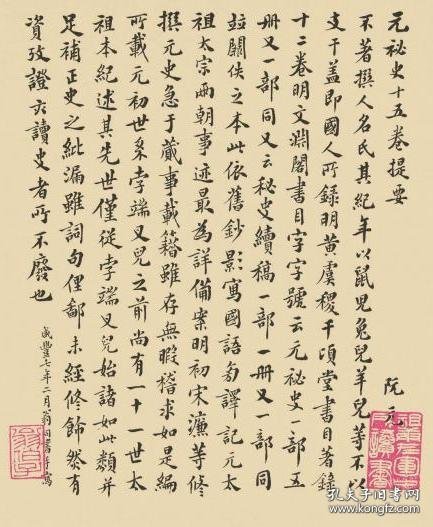 元祕史十五卷提要
阮元
不著撰人名氏其紀年以鼠兒兔兒羊兒等不以
支干蓋即國人所錄明黃虞稷千頃堂書目著錄
十二卷明文淵閣書目字字號云元祕史一部五
冊又一部同又云秘史續稿一部一冊又一部同
竝闕佚之本此依舊鈔影寫國語旁譯記元太
祖太宗兩朝事迹最為詳備案明初宋濂等修
撰元史急于蕆事載籍雖存無暇稽求如是編
所載元初世系孛端叉兒之前尚有一十一世太
祖本紀述其先世僅從孛端叉兒始諸如此類并
足補正史之紕漏雖詞句俚鄙未經修飾然有
資攷證亦讀史者所不廢也
咸豐七年二月翁同書手寫
祖庚在軍中讀書
孔夫子旧书网
www.kongfz.com